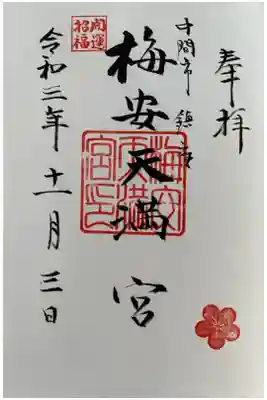 奉拝
十間市 鎮座
開運招福
梅安天満宮
梅安天満宮印
令和三年十一月三日